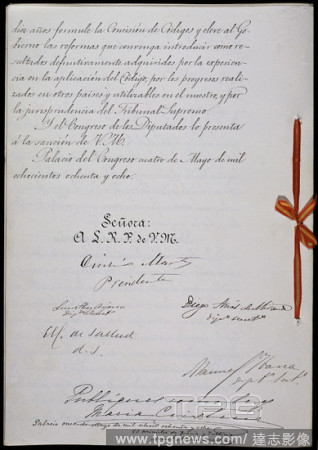 diez años formule la Comisión de Códigos y eleve al Go-
bierno las reformas que convenga introducir como re-
sultados definitivamente adquiridos por la experien-
cia en la aplicación del Código, por los progresos reali-
zados en otros países y utilizables en el nuestro, y por
la jurisprudencia del Tribunal Supremo
Y el Congreso de los Diputados lo presenta
á la sanción de V. M.
Palacio del Congreso cuatro de Mayo de mil
ochocientos ochenta y ocho.
Señora:
A L. R. P. de V. M.
Cristino Martos
Presidente
Diego Arias de Miranda
El C. de Sallent
d. s.
Publíquese como Ley
María Cristina
Palacio once de Mayo de mil ochocientos ochenta y ocho
TPG
www.tpgnews.com/ 達志影像